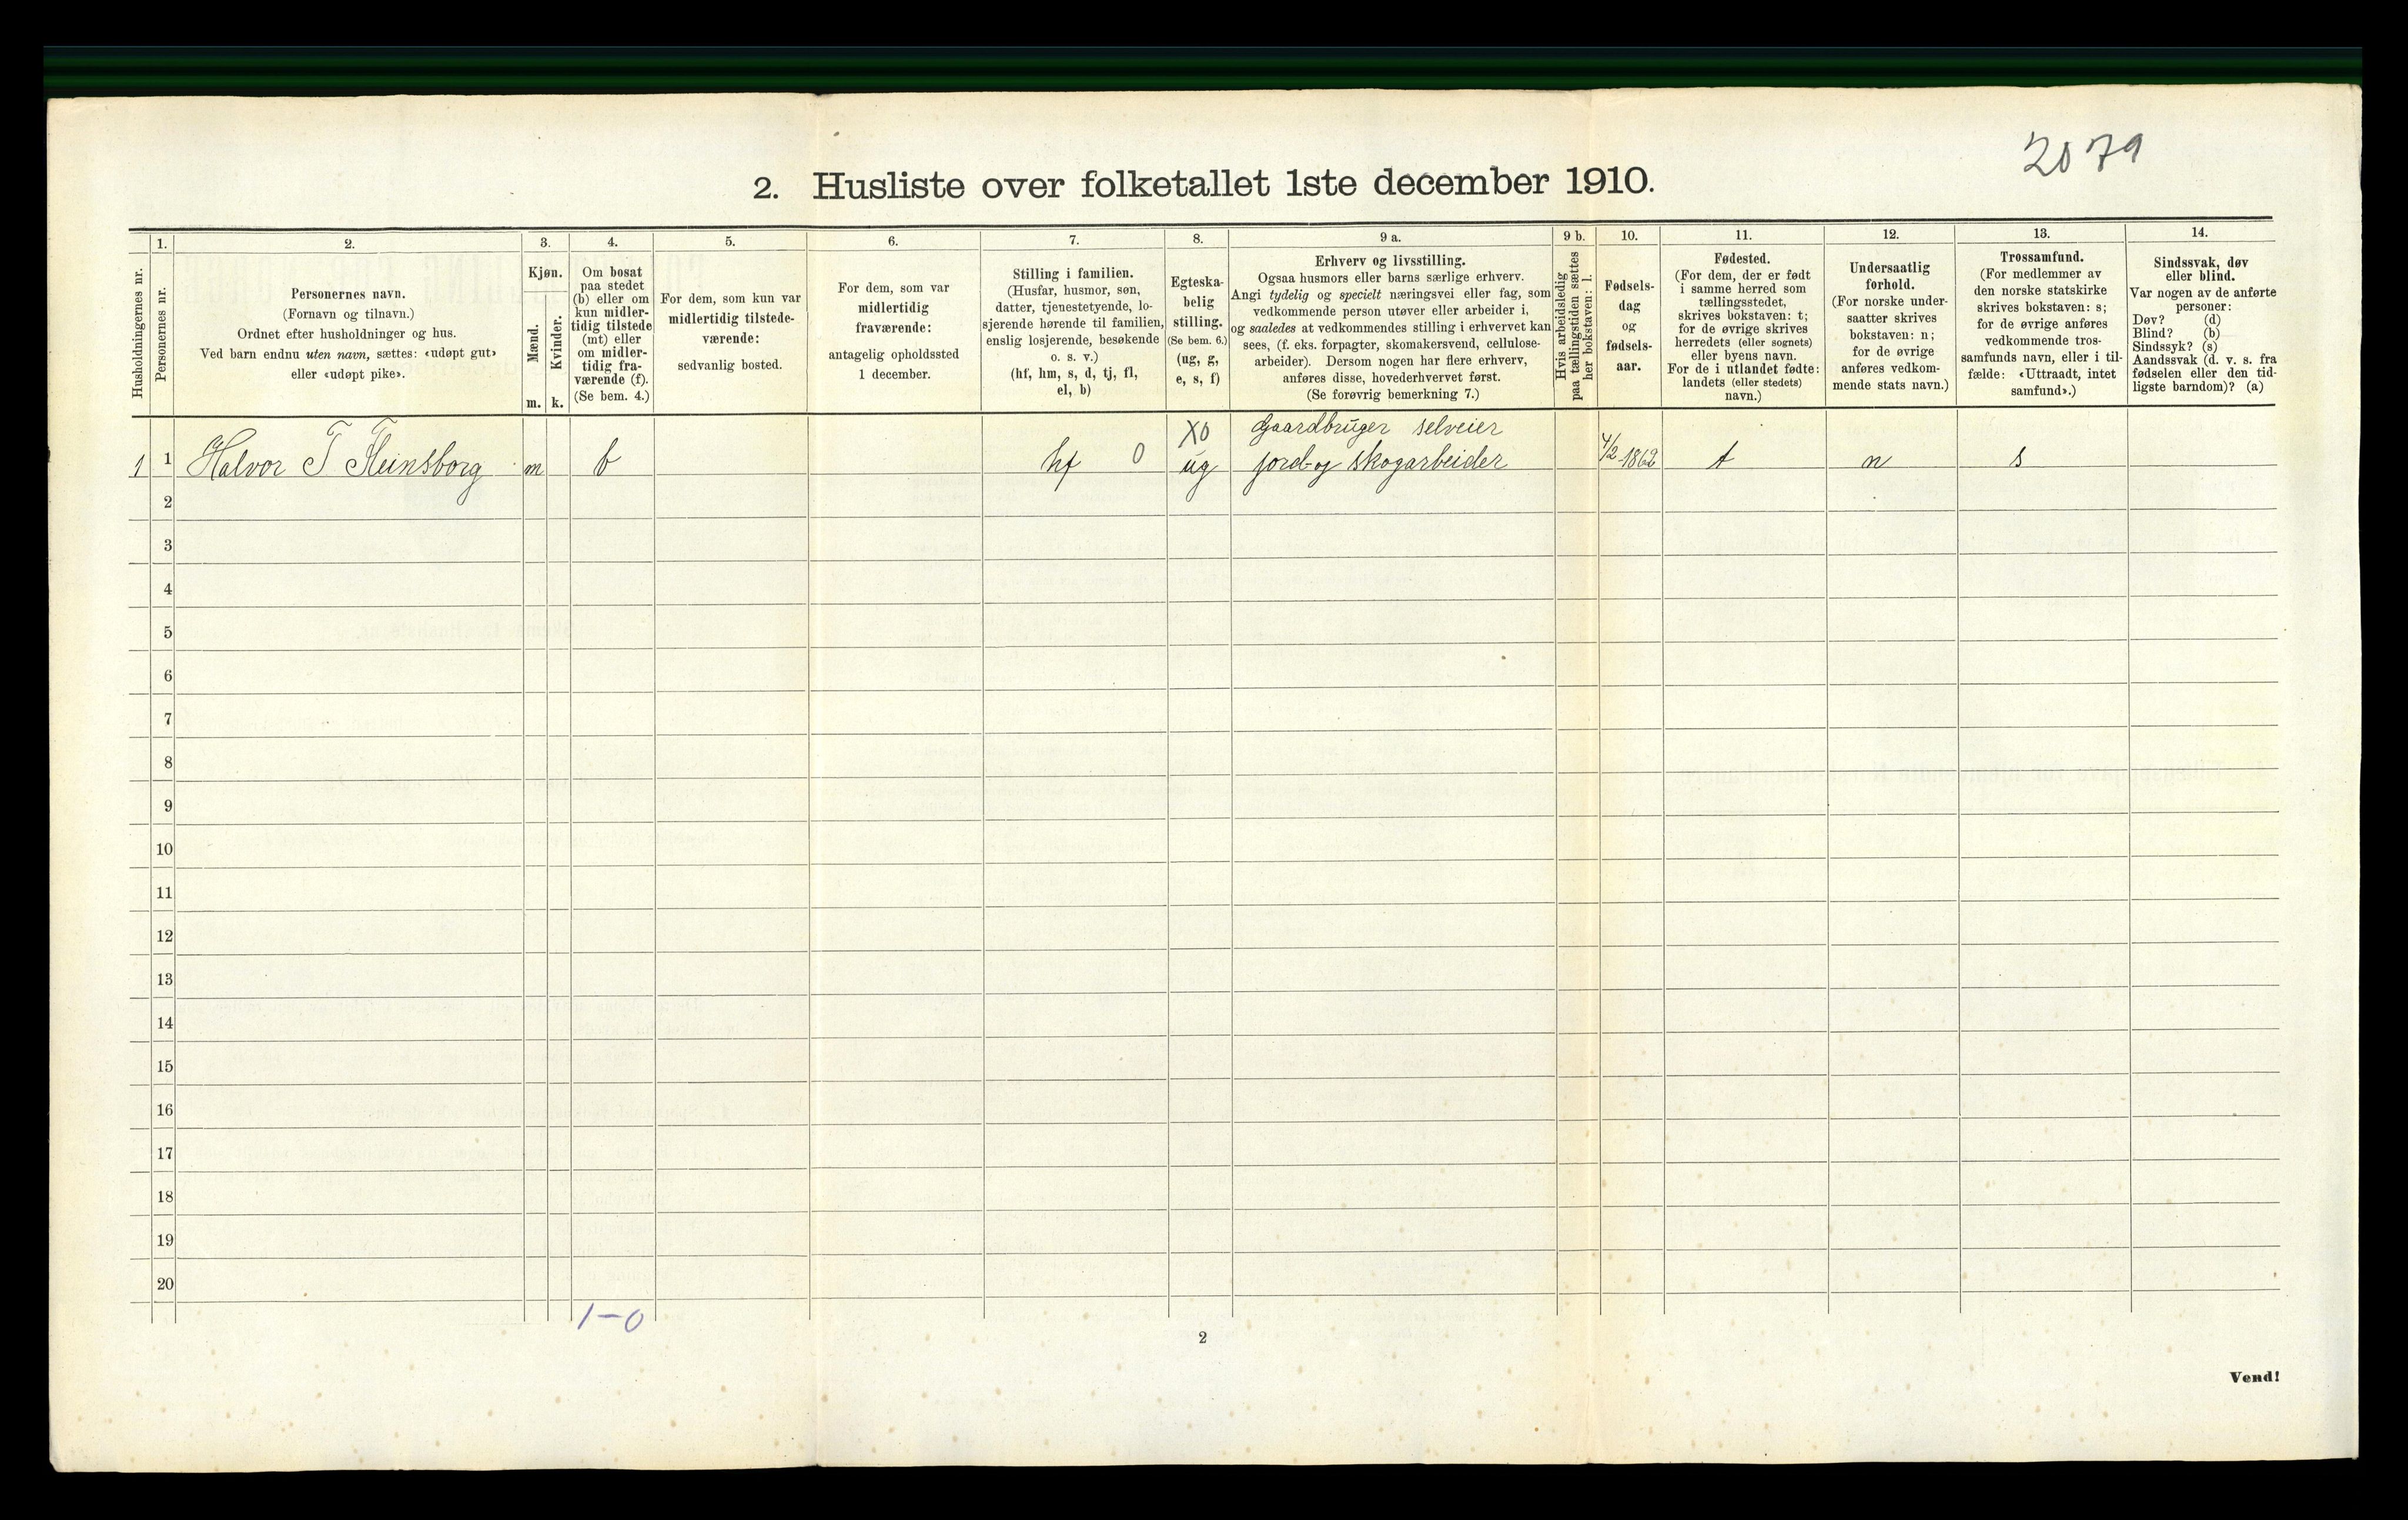 2079
2. Husliste over folketallet 1ste december 1910.
Husholdningernes nr.
1.
Personernes nr.
2.
Personernes navn.
(Fornavn og tilnavn.)
Ordnet efter husholdninger og hus.
Ved barn endnu uten navn, sættes: «udøpt gut»
eller «udøpt pike».
3.
Kjøn.
Mænd.
Kvinder.
m. k.
4.
Om bosat
paa stedet
(b) eller om
kun midler-
tidig tilstede
(mt) eller
om midler-
tidig fra-
værende (f).
(Se bem. 4.)
5.
For dem, som kun var
midlertidig tilstede-
værende:
sedvanlig bosted.
6.
For dem, som var
midlertidig
fraværende:
antagelig opholdssted
1 december.
7.
Stilling i familien.
(Husfar, husmor, søn,
datter, tjenestetyende, lo-
sjerende hørende til familien,
enslig losjerende, besøkende
o. s. v.)
(hf, hm, s, d, tj, fl,
el, b)
8.
Egteska-
belig
stilling.
(Se bem. 6.)
(ug, g,
e, s, f)
9 a.
Erhverv og livsstilling.
Ogsaa husmors eller barns særlige erhverv.
Angi tydelig og specielt næringsvei eller fag, som
vedkommende person utøver eller arbeider i,
og saaledes at vedkommendes stilling i erhvervet kan
sees, (f. eks. forpagter, skomakersvend, cellulose-
arbeider). Dersom nogen har flere erhverv,
anføres disse, hovederhvervet først.
(Se forøvrig bemerkning 7.)
9 b.
Hvis arbeidsledig
paa tællingstiden sættes
her bokstaven: l.
10.
Fødsels-
dag
og
fødsels-
aar.
11.
Fødested.
(For dem, der er født
i samme herred som
tællingsstedet,
skrives bokstaven: t;
for de øvrige skrives
herredets (eller sognets)
eller byens navn.
For de i utlandet fødte:
landets (eller stedets)
navn.)
12.
Undersaatlig
forhold.
(For norske under-
saatter skrives
bokstaven: n;
for de øvrige
anføres vedkom-
mende stats navn.)
13.
Trossamfund.
(For medlemmer av
den norske statskirke
skrives bokstaven: s;
for de øvrige anføres
vedkommende tros-
samfunds navn, eller i til-
fælde: «Uttraadt, intet
samfund».)
14.
Sindssvak, døv
eller blind.
Var nogen av de anførte
personer:
Døv? (d)
Blind? (b)
Sindssyk? (s)
Aandssvak (d. v. s. fra
fødselen eller den tid-
ligste barndom)? (a)
X0 Gaardbruger selveier
1 1 Halvor T Fleinsborg m b hf 0 ug jord- og skogarbeider 4/2 1862 t n s
2
3
4
5
6
7
8
9
10
11
12
13
14
15
16
17
18
19
20
1-0
2
Vend!